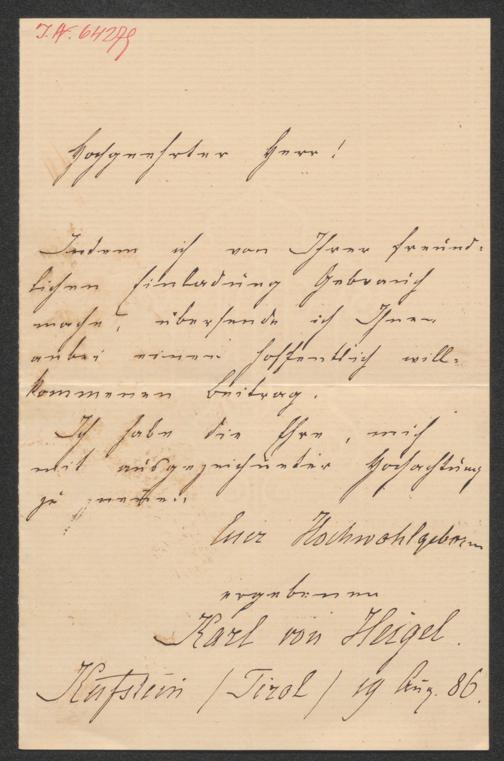 I.N. 64279
Hochgeehrter Herr!
Indem ich von Ihrer freund-
lichen Einladung Gebrauch
mache, übersende ich Ihnen
anbei einen hoffentlich will-
kommenen Beitrag.
Ich habe die Ehre, mich
mit ausgezeichneter Hochachtung
zu nennen
Euer Hochwohlgeboren
ergebenen
Karl von Heigel.
Kufstein / Tirol / 19 Aug. 86.